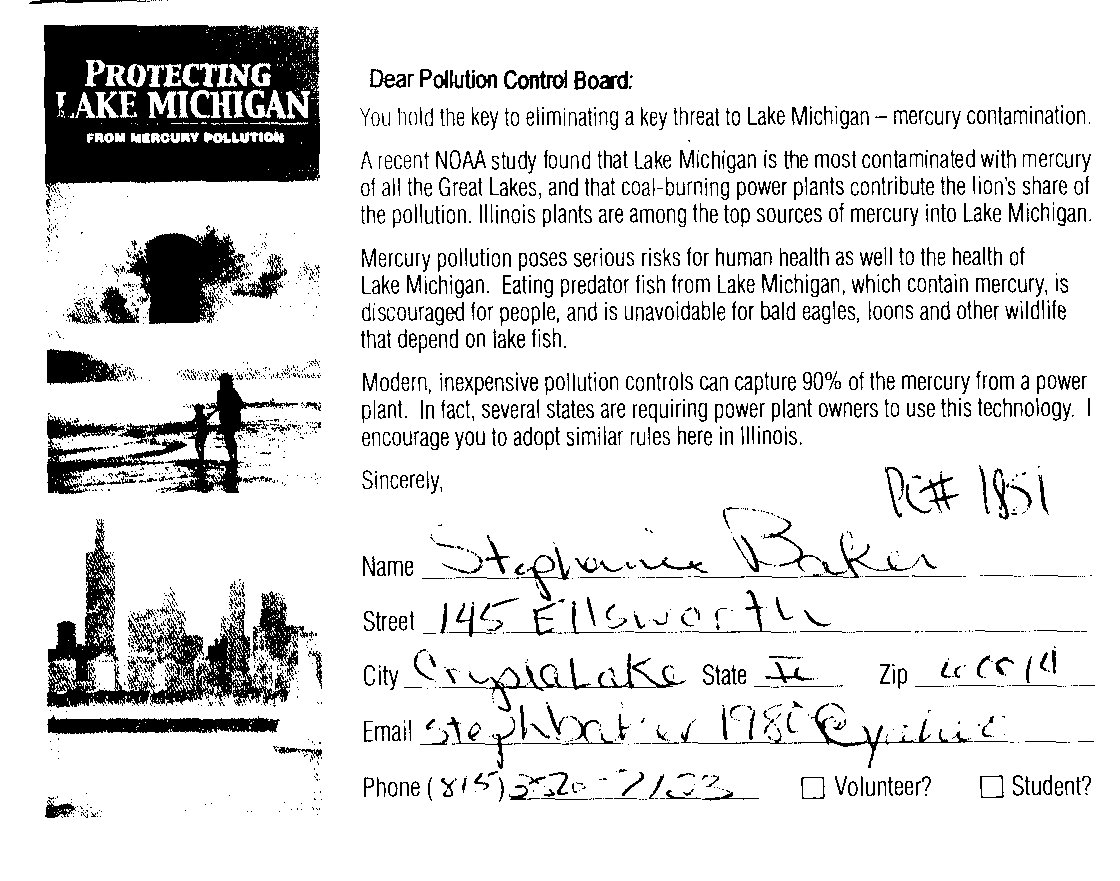 PROTECTING
LAKE MICHIGAN
FROM MERCURY POLLUTION
Dear Pollution Control Board:
You hold the key to eliminating a key threat to Lake Michigan – mercury contamination.
A recent NOAA study found that Lake Michigan is the most contaminated with mercury
of all the Great Lakes, and that coal-burning power plants contribute the lion's share of
the pollution. Illinois plants are among the top sources of mercury into Lake Michigan.
Mercury pollution poses serious risks for human health as well to the health of
Lake Michigan. Eating predator fish from Lake Michigan, which contain mercury, is
discouraged for people, and is unavoidable for bald eagles, loons and other wildlife
that depend on lake fish.
Modern, inexpensive pollution controls can capture 90% of the mercury from a power
plant. In fact, several states are requiring power plant owners to use this technology. I
encourage you to adopt similar rules here in Illinois.
Sincerely,
PC# 1851
Name Stephanie Baker
Street 145 Ellsworth
City Crystal Lake State IL Zip
Email
Phone (815)
Volunteer? Student?